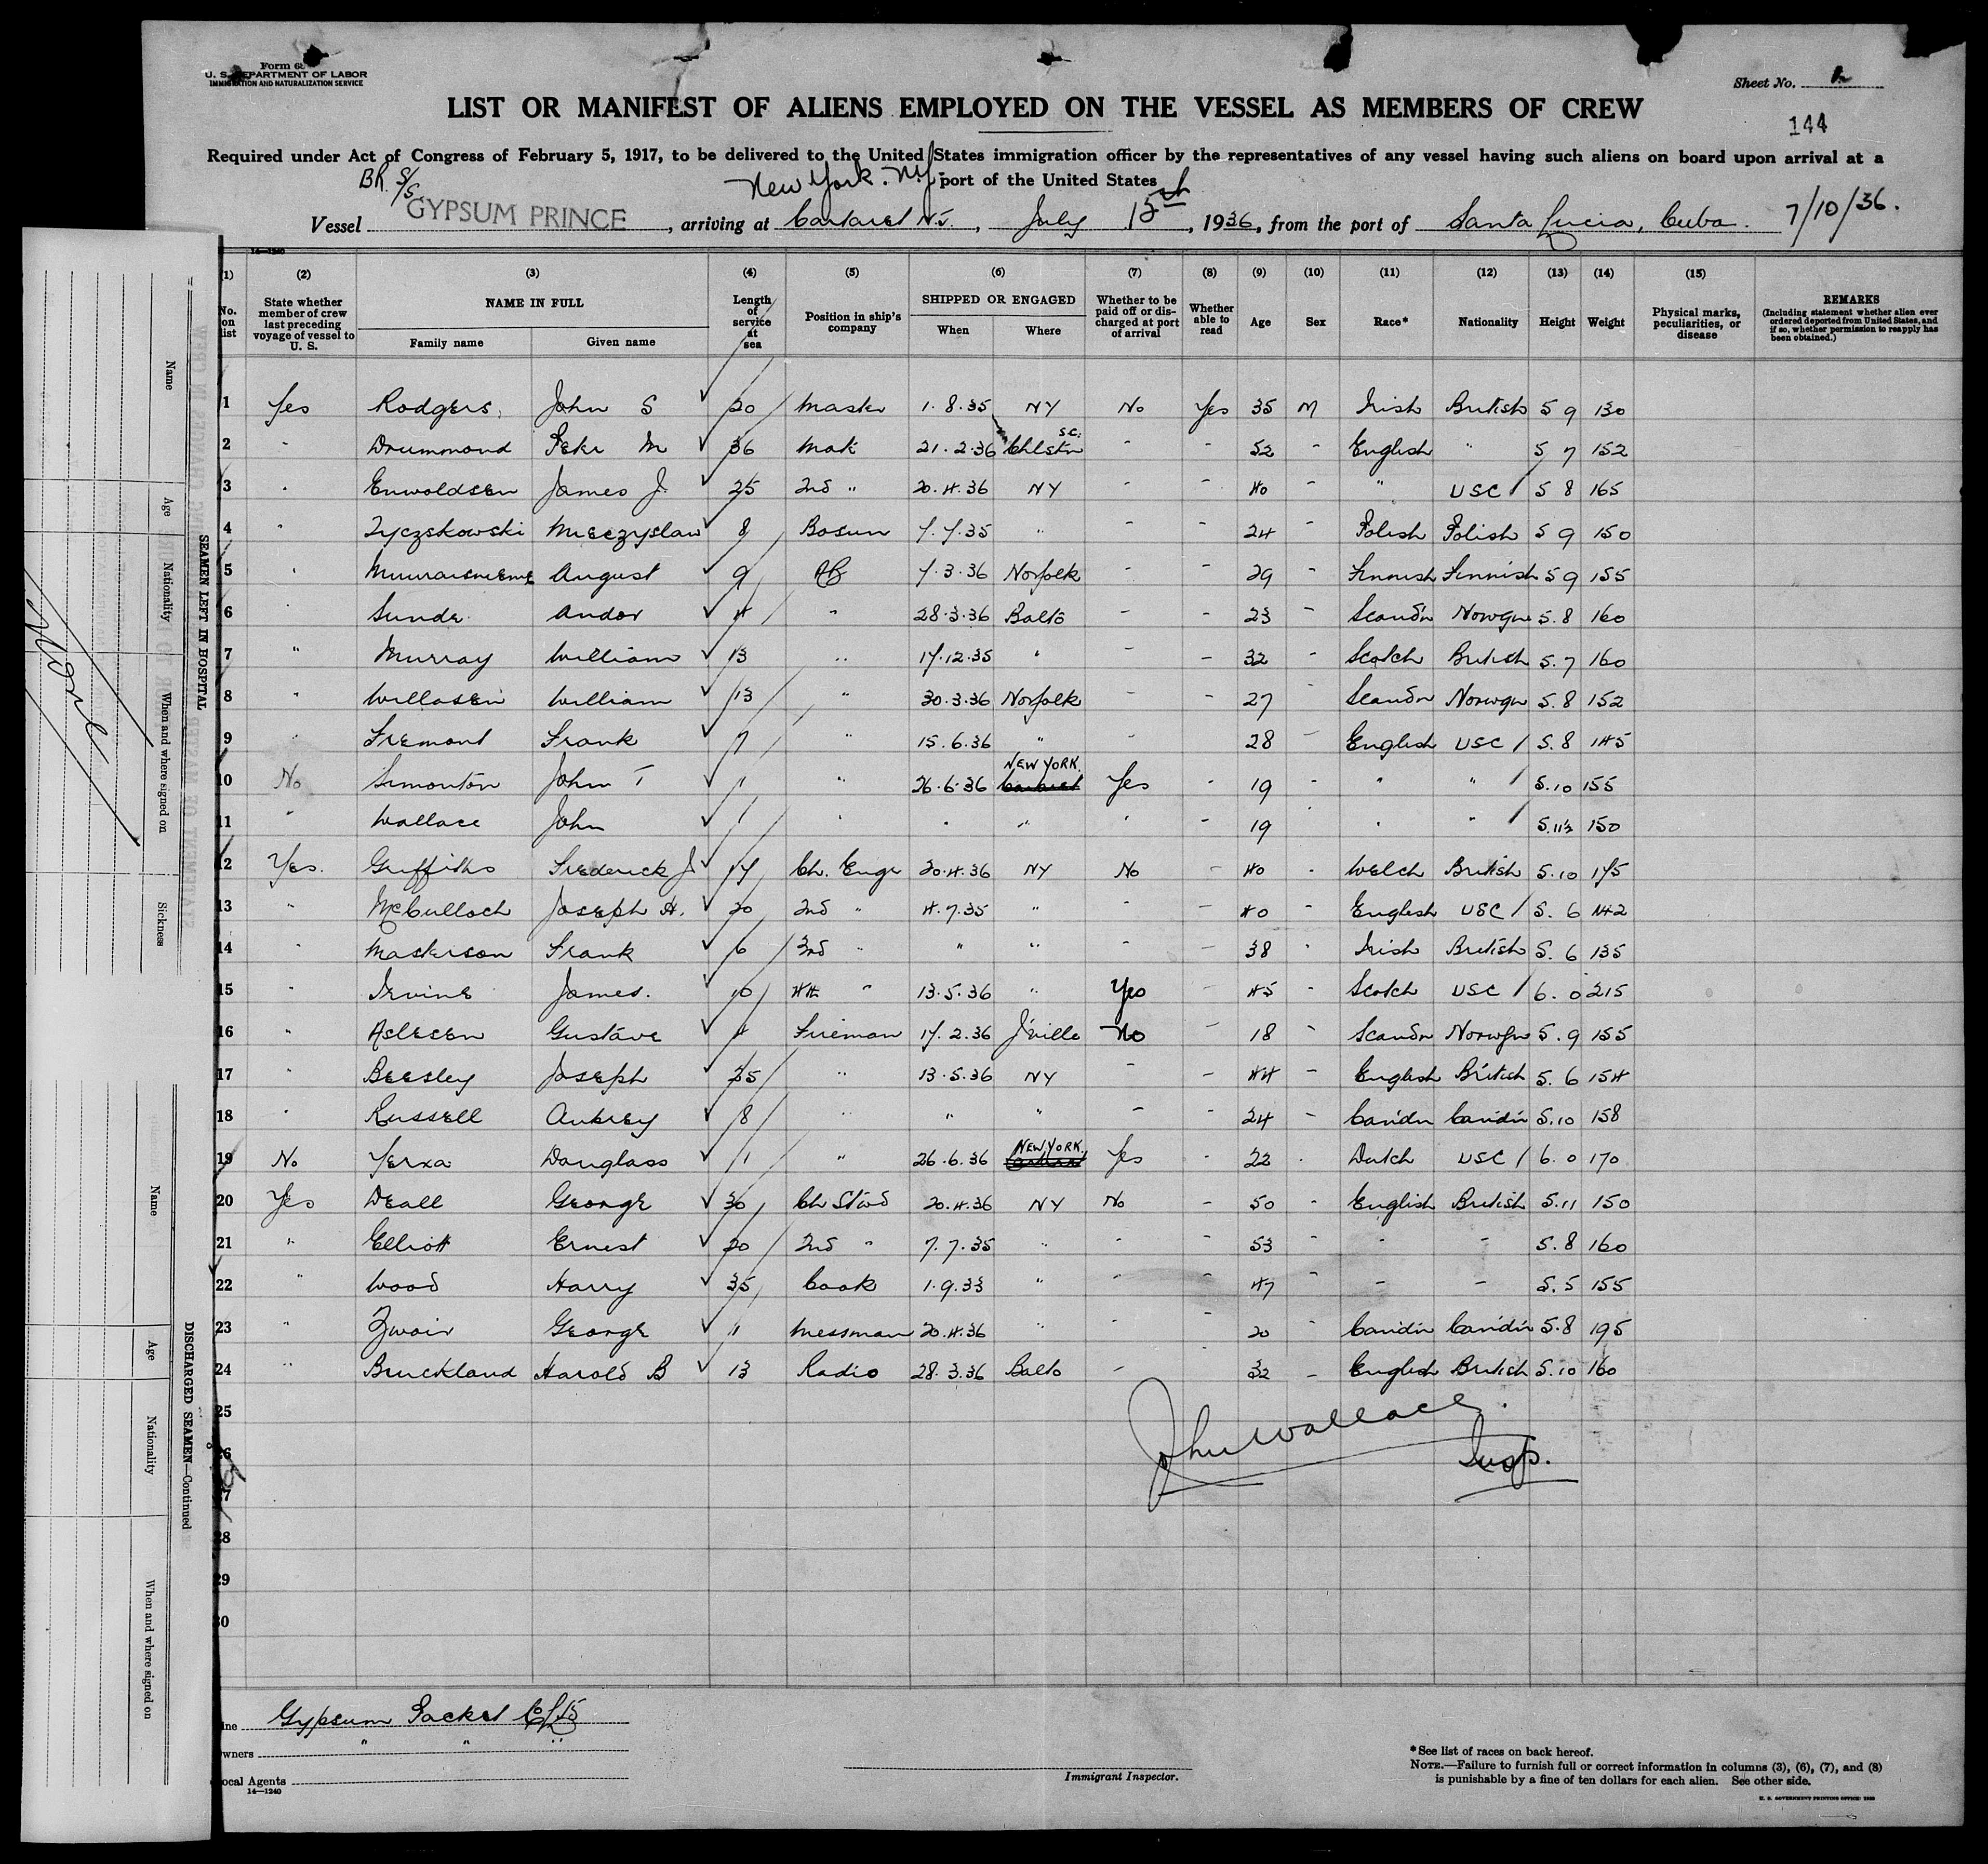 Form 68
U. S. DEPARTMENT OF LABOR
IMMIGRATION AND NATURALIZATION SERVICE
Sheet No.
LIST OR MANIFEST OF ALIENS EMPLOYED ON THE VESSEL AS MEMBERS OF CREW
144
Required under Act of Congress of February 5, 1917, to be delivered to the United States immigration officer by the representatives of any vessel having such aliens on board upon arrival at a
port of the United States
Br. S/S. New York. N.Y.
Vessel GYPSUM PRINCE, arriving at Cartaret N.J., July 15th, 1936, from the port of Santa Lucia, Cuba. 7/10/36.
14—1240
(1) (2) (3) (4) (5) (6) (7) (8) (9) (10) (11) (12) (13) (14) (15)
No. on list
State whether member of crew last preceding voyage of vessel to U. S.
NAME IN FULL
Family name Given name
Length of service at sea
Position in ship's company
SHIPPED OR ENGAGED
When Where
Whether to be paid off or discharged at port of arrival
Whether able to read
Age
Sex
Race*
Nationality
Height
Weight
Physical marks, peculiarities, or disease
REMARKS
(Including statement whether alien ever ordered deported from United States, and if so, whether permission to reapply has been obtained.)
1 Yes Rodgers John S 20 Master 1.8.35 NY No Yes 35 M Irish British 5 9 130
2 " Drummond Peter M 36 Mate 21.2.36 Chlstn S.C. - - 52 - English " 5 7 152
3 " Enwoldsen James J. 25 2nd " 20.4.36 NY - - 40 - " USC / 5 8 165
4 " Zyczskowski Mieczyslaw 8 Bosun 7.7.35 " - - 24 - Polish Polish 5 9 150
5 " August 9 AB 7.3.36 Norfolk - - 29 - Finnish Finnish 5 9 155
6 " Sunde Andor 4 " 28.3.36 Balto - - 23 - Scandn Norwgn 5.8 160
7 " Murray William 13 " 17.12.35 " - - 32 - Scotch British 5.7 160
8 " Willasen William 13 " 30.3.36 Norfolk - - 27 - Scandn Norwgn 5.8 152
9 " Fremont Frank 7 " 15.6.36 " - 28 - English USC / 5.8 145
10 No Simonton John T 1 " 26.6.36 NEW YORK. Yes - 19 " " / 5.10 155
11 " Wallace John 1 " " " - 19 " " / 5.11½ 150
12 Yes. Griffiths Frederick J 17 Ch. Engr 20.4.36 NY No - 40 - Welch British 5.10 175
13 " McCulloch Joseph A. 20 2nd " 4.7.35 " - - 40 - English USC / 5.6 142
14 " Masterson Frank 6 3rd " " " - - 38 - Irish British 5.6 135
15 " Irvine James. 10 4th " 13.5.36 " Yes - 45 - Scotch USC / 6.0 215
16 " Aclesen Gustave Fireman 17.2.36 J'ville No - 18 - Scandn Norwgn 5.9 155
17 " Beesley Joseph 25 " 13.5.36 NY - - 44 - English British 5.6 154
18 " Russell Aubrey 8 " " " - - 24 - Candn Candn 5.10 158
19 No Yerxa Douglass 1 " 26.6.36 NEW YORK. Yes - 22 - Dutch USC / 6.0 170
20 Yes Deall George 30 Ch Stwd 20.4.36 NY No - 50 - English British 5.11 150
21 " Elliott Ernest 20 2nd " 7.7.35 " - - 53 - - - 5.8 160
22 " Wood Harry 35 Cook 1.9.33 " - - 47 - - - 5.5 155
23 " George Messman 20.4.36 " - 20 - Canidn Canidn 5.8 195
24 " Bruckland Harold B 13 Radio 28.3.36 Balto - 32 - English British 5.10 160
25
John Wallace.
26
Insp.
27
28
29
30
Line Gypsum Packet Co Ltd
Owners " " "
Local Agents
14—1240
Immigrant Inspector.
*See list of races on back hereof.
NOTE.—Failure to furnish full or correct information in columns (3), (6), (7), and (8)
is punishable by a fine of ten dollars for each alien. See other side.
U. S. GOVERNMENT PRINTING OFFICE
SEAMEN LEFT IN HOSPITAL
Name
Age
Nationality
When and where signed on
Sickness
None
DISCHARGED SEAMEN—Continued
Name
Age
Nationality
When and where signed on